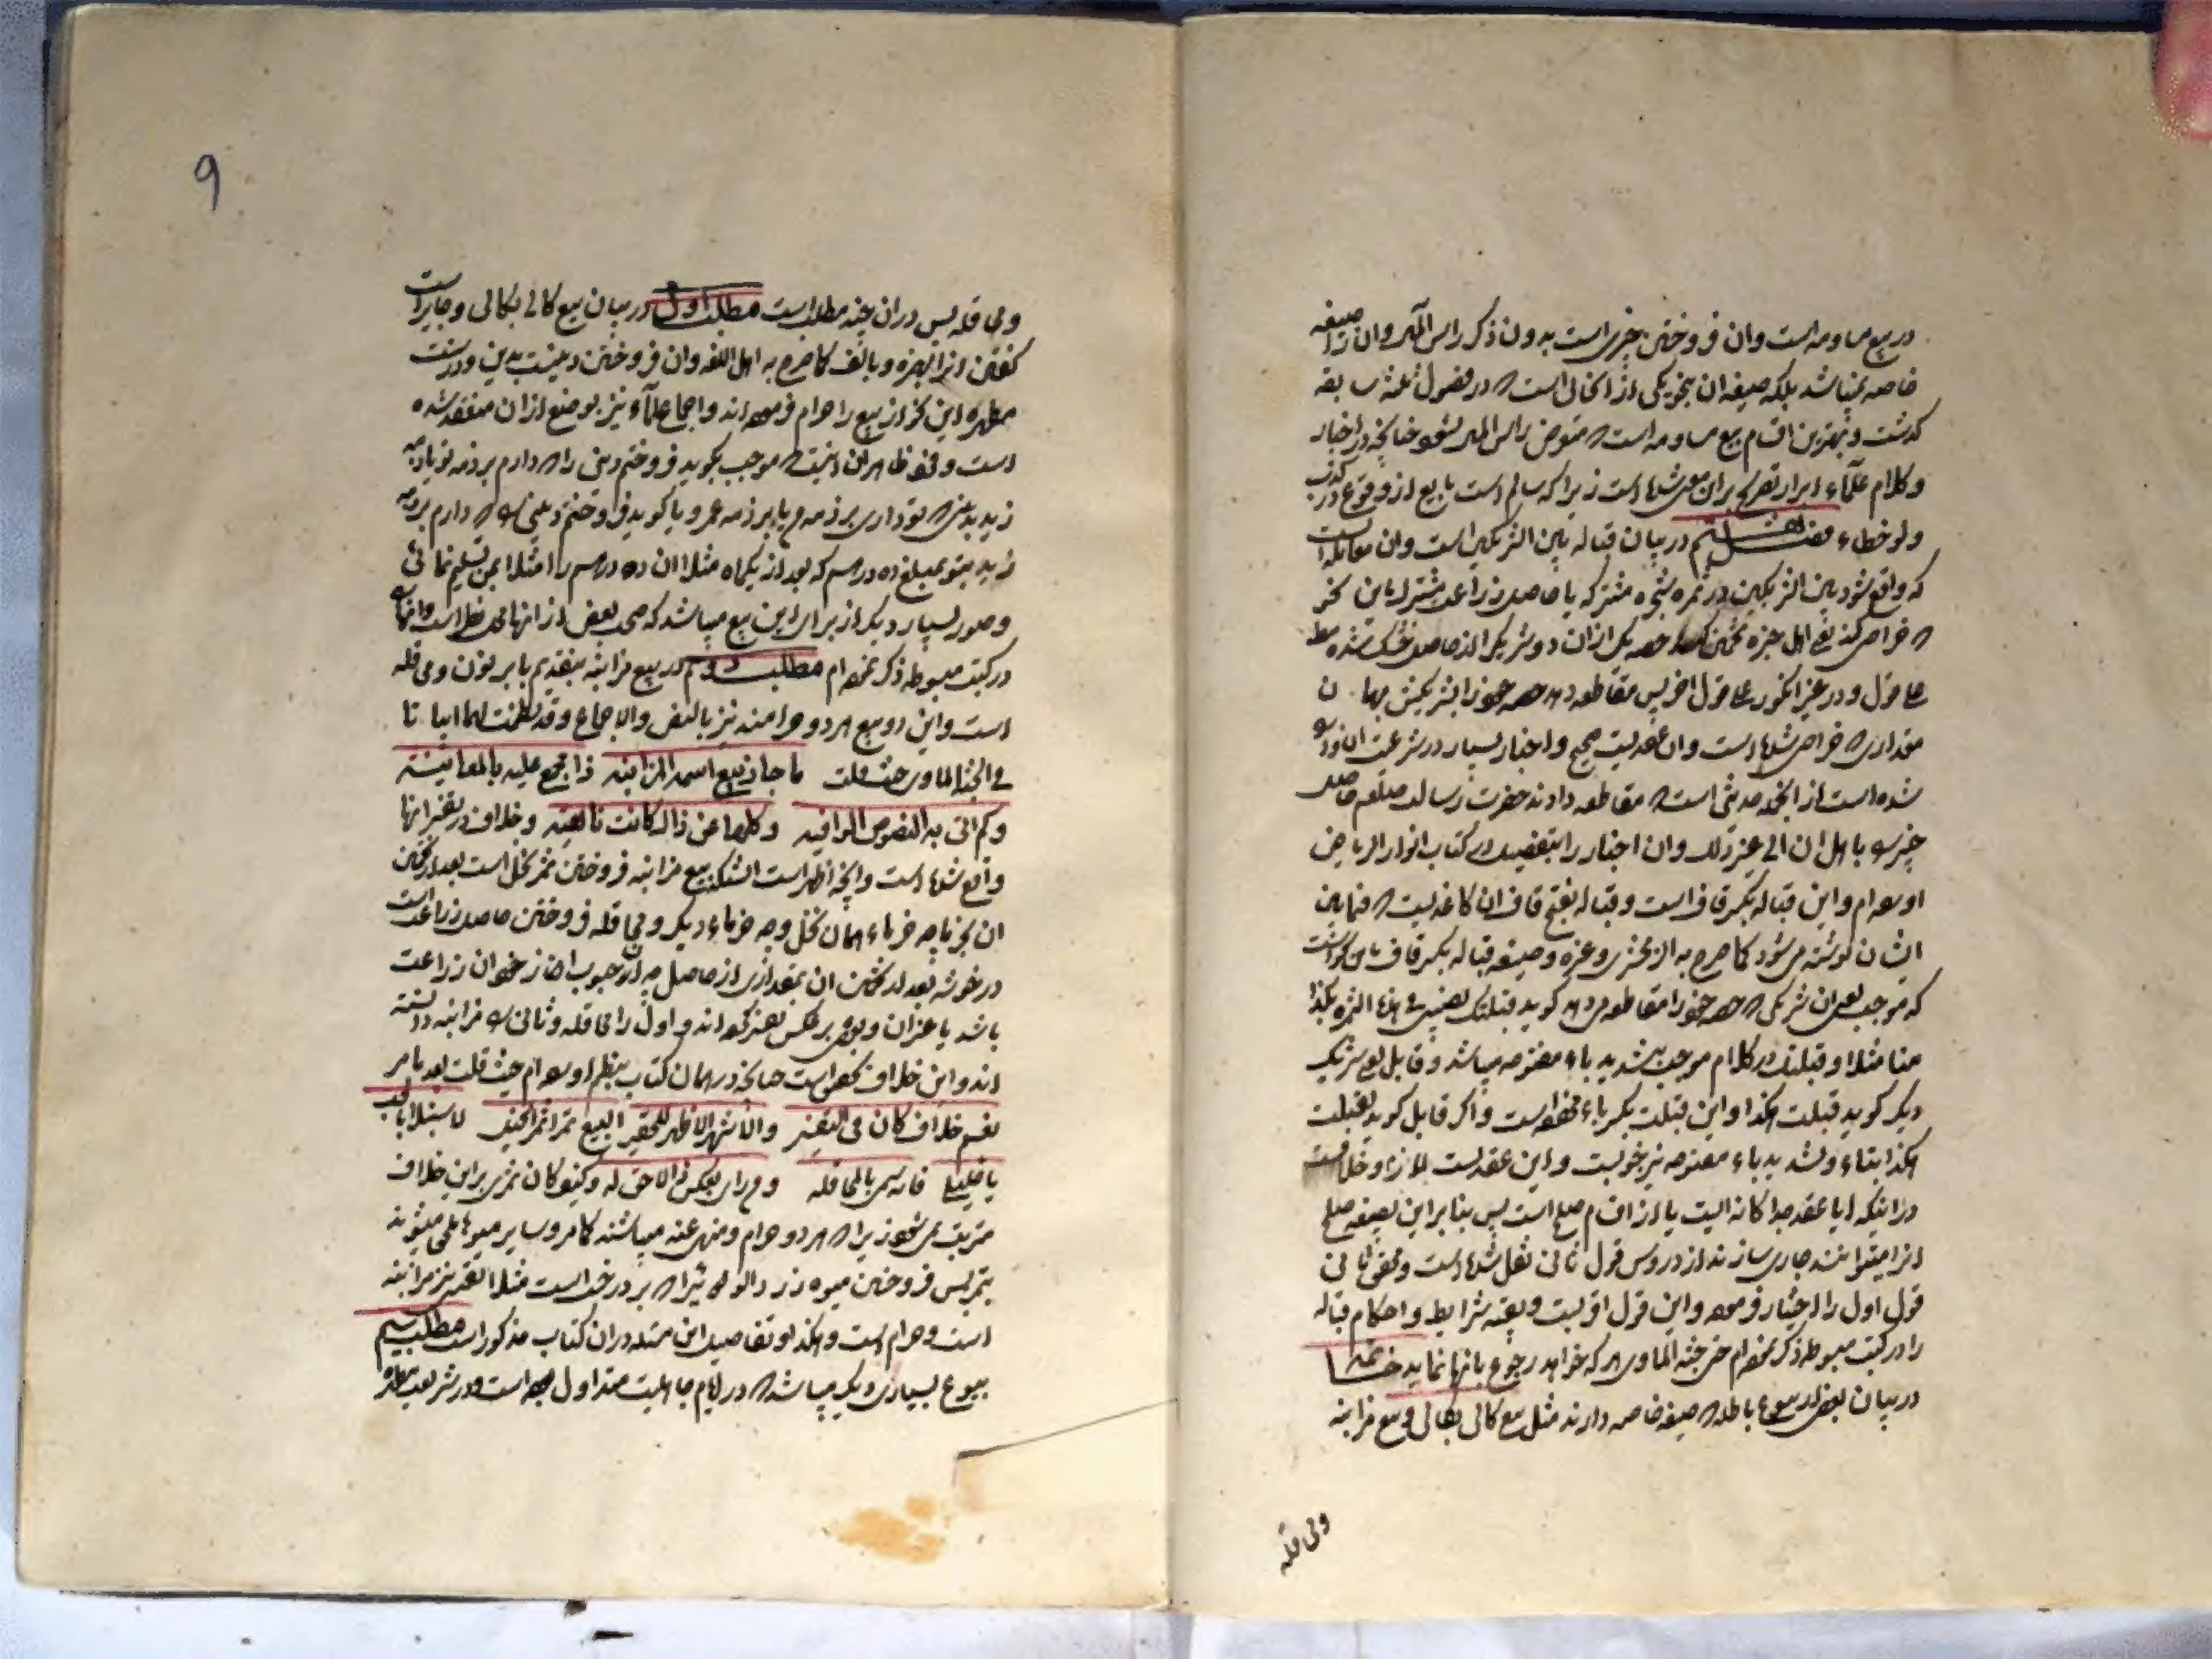 در بیع مساومه است وان فروختن چیزی است بدون ذکر راس المال وان را صیغه
خاصه نمیباشد بلکه صیغه ان بنحو یکی از انحائی است که در فصول ثلثه سابقه
گذشت و بهترین اقسام بیع مساومه است که متعرض راس المال نشود چنانچه در اخبار
و کلام علماء ابرار تصریح بران معنی شده است زیرا که سالم است بایع از وقوع در کذب
ولو خطاء فصل هشتم در بیان قباله بین الشریکین است وان معامله است
که واقع شود بین الشریکین در ثمره شجره مشترکه یا حاصل زراعت مشترک باین نحو
که خراص کند یعنی اهل خبره تخمین کند حصه یک ازان دو شریک را از حاصل خشک شده
علی قول و در غیر انگور علی قول اخر پس مقاطعه دهد حصه خود را بشریکش بهمان
مقداری که خراص شده است وان عقدیست صحیح و اخبار بسیار در شرعیت ان وارد
شده است از انجمله حدیثی است که مقاطعه دادند حضرت رسالت صلعم حاصل
خیبر را با اهل ان الی غیر ذلک وان اخبار را بتفصیل در کتاب انوار الریاض
اورده ام واین قباله بکسر قاف است و قباله بفتح قاف ان کاغذیست که فیما بین
ایشان نوشته می شود کما صرح به الزمخشری و غیره و صیغه قباله بکسر قاف
که موجب یعنی ان شریکی که حصه خود را مقاطعه می دهد گوید قبلتک نصیبی فی هذه الثمره بکذا
منا مثلا و قبلتک در کلام موجب بتشدید باء مفتوحه میباشد و قابل یعنی شریک
دیگر گوید قبلت هکذا واین قبلت بکسر باء مخففه است واگر قابل گوید تقبلت
هکذا بتاء و تشدید باء مفتوحه نیز خوبست واین عقدیست لازم و خلاف است
در اینکه ایا عقد جداگانه ایست یا از اقسام صلح است پس بنا براین بصیغه صلح
انرا میتوانند جاری سازند از دروس قول ثانی نقل شده است و محقق ثانی
قول اول را اختیار فرموده واین قول اقویست و بقیه شرایط و احکام قباله
را در کتب مبسوطه ذکر نموده ام حتی جنه الماوی هر که خواهد رجوع بانها نماید خاتمه
در بیان بعض از بیوع باطله که صیغه خاصه دارند مثل بیع کالی بکالی و بیع مزابنه
ومحاقله
9
ومحاقله پس دران چند مطلب است مطلب اول در بیان بیع کالی بکالی و جایز است
گفتن انرا بهمزه و بالف کما صرح به اهل اللغه وان فروختن دینست بدین و در سنت
مطهره این نحو از بیع را حرام فرموده اند و اجماع علماء نیز بر منع ازان منعقد شده
است و لفظ ظاهر ان اینست که موجب بگوید فروختم دینی را که دارم بر ذمه تو یا بر ذمه
زید بدینی که تو داری بر ذمه من یا بر ذمه عمرو یا گوید فروختم دینی را که دارم بر ذمه
زید بتو بمبلغ ده درهم که بعد از یکماه مثلا ان ده درهم را مثلا بمن تسلیم نمائی
و صور بسیار دیگر از برای این بیع میباشد که در بعض از انها محل نظر است وانها را
در کتب مبسوطه ذکر نموده ام مطلب دوم در بیع مزابنه بتقدیم با بر نون ومحاقله
است واین دو بیع هر دو حرامند نیز بالنص والاجماع وقد نظمت لهما ابیاتا
فی الجنه الماوی حیث قلت ما جاز بیع اسمه المزابنه ذا مجمع علیه بالمعاینه
وکم اتی به النصوص الوافیه وکلها عن ذالک کانت ناهیه و خلاف در تفسیر انها
واقع شده است وانچه اظهر است انستکه بیع مزابنه فروختن ثمر نخل است بعد از تخمین
ان بخرما چه خرماء همان نخل و چه خرماء دیگر ومحاقله فروختن حاصل زراعت است
در خوشه بعد از تخمین ان بمقداری از حاصل چه از حبوب ان از خود ان زراعت
باشد یا غیر ان و بعضی برعکس تفسیر کرده اند و اول را محاقله و ثانی را مزابنه دانسته
اند واین خلاف نحوی است چنانچه در همان کتاب بنظم اورده ام حیث قلت بعد ما مر
نعم خلاف کان فی التفسیر والاشهر الاظهر للحقیر البیع تمرا ثمر النخیل
یا خلیلی فانه سمی بالمحاقله و من رای بعکس ذا لاحق له و لیکن ثمری براین خلاف
مترتب نمی شود زیرا که هر دو حرام و منهی عنه میباشند کما مر و سایر میوها ملحق میشوند
بتمر پس فروختن میوه زردالو و غیرا که بر درخت است مثلا بقدر نیز مزابنه
است و حرام است و هکذا و تفاصیل این مسئله دران کتاب مذکور است مطلب سیم
بیوع بسیاری دیگر میباشد که در ایام جاهلیت متداول بوده است و در شریعت مطهره